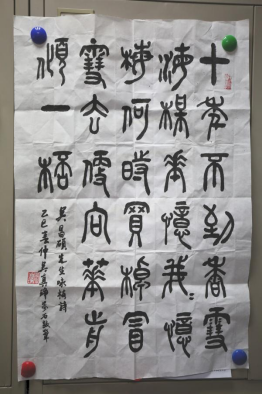 十年不到香雪
海楳花憶我〻憶
梅何時買棹冒
雪去便向華前
傾一桮
吳昌碩先生咏梅詩
乙巳春仲